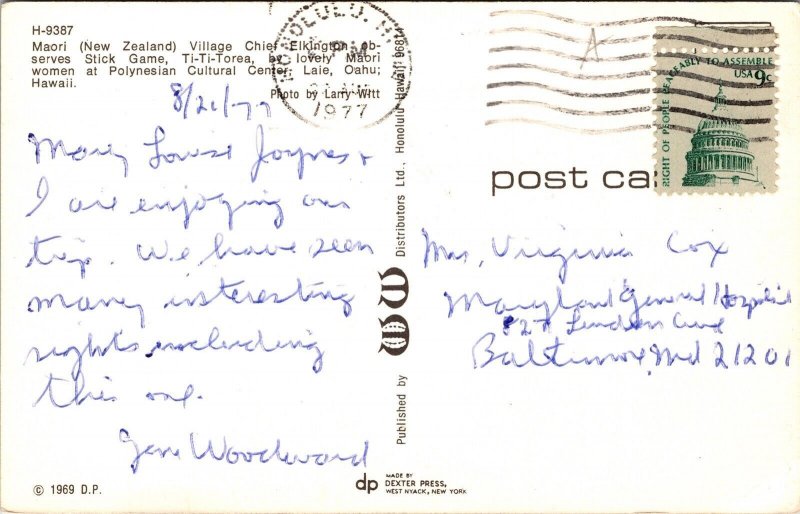 H-9387
Maori (New Zealand) Village Chief Elkington ob-
serves Stick Game, Ti-Ti-Torea, by lovely Maori
women at Polynesian Cultural Center, Laie, Oahu;
Hawaii.
Photo by Larry Witt
8/21/77
Mary Louise Joynes &
I are enjoying our
trip. We have seen
many interesting
sights including
this one.
Gene Woodward
© 1969 D.P.
HONOLULU, HI
PM
1977
Published by Distributors Ltd., Honolulu, Hawaii 96814
dp
MADE BY
DEXTER PRESS,
WEST NYACK, NEW YORK
A
RIGHT OF PEOPLE PEACEABLY TO ASSEMBLE
USA 9c
post ca
Mrs, Virginia Cox
Maryland General Hospital
827 Linden Ave
Baltimore, Md 21201